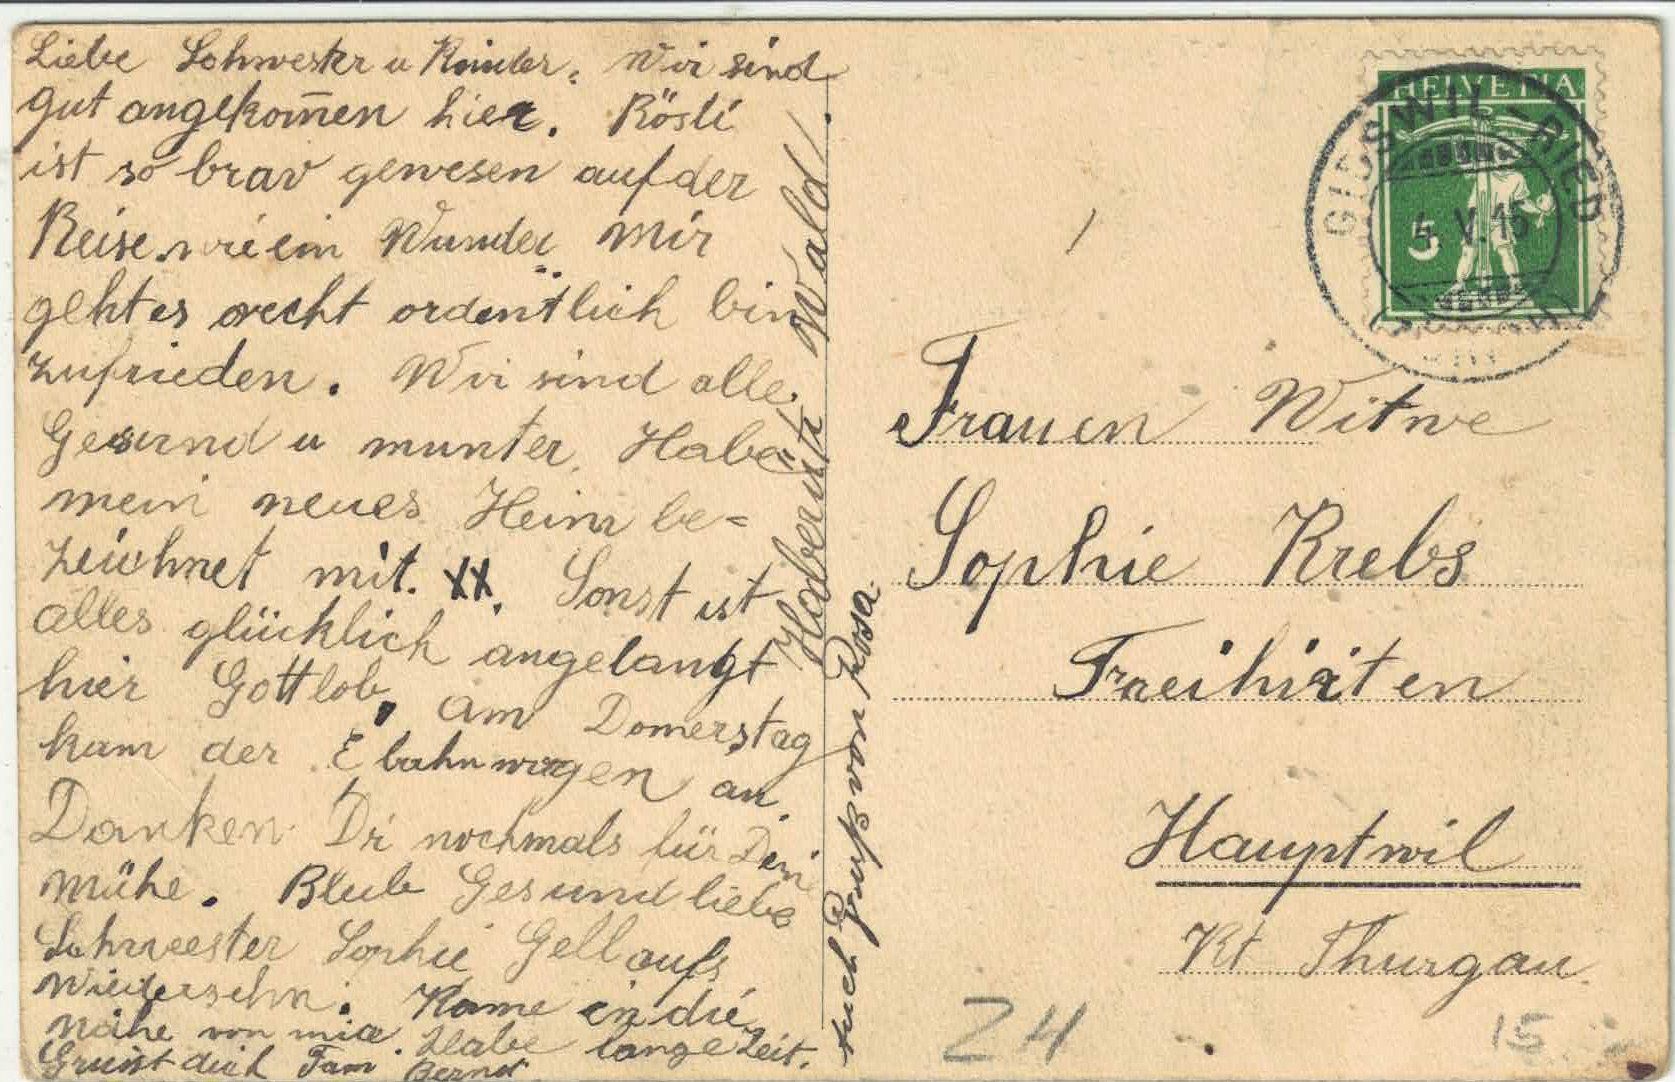 Liebe Schwester u Kinder. Wir sind
gut angekom̄en hier. Rösli
ist so brav gewesen auf der
Reise wie ein Wunder Mir
geht es recht ordentlich bin
zufrieden. Wir sind alle
Gesund u munter. Habe
mein neues Heim be=
zeichnet mit. XX. Sonst ist
alles glücklich angelangt
hier Gottlob, am Donnerstag
kam der E bahnwagen an
Danken Dir nochmals für Deine
Mühe. Bleib Gesund liebe
Schweester Sophie Gell aufs
Wiedersehn. Kome in die
Nähe von mir. Habe lange Zeit.
Grüsst dich Fam
Wald.
auch Gruß von Rosa
HELVETIA
5
GIBSWIL-RIED
4. V. 15
Frauen Witwe
Sophie Krebs
Freihirten
Hauptwil
Kt Thurgau
24
15